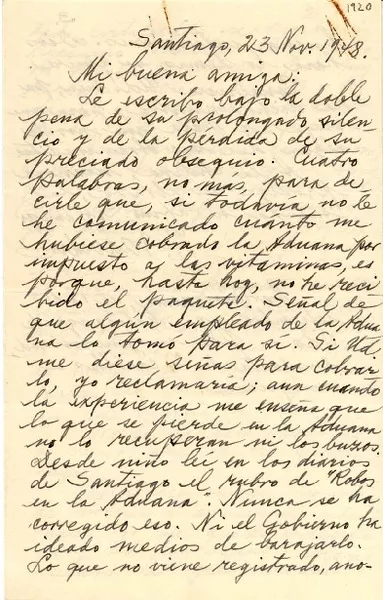 1920
Santiago, 23 Nov. 1948.
Mi buena amiga:
Le escribo bajo la doble
pena de su prolongado silen-
cio y de la pérdida de su
preciado obsequio. Cuatro
palabras, no más, para de-
cirle que, si todavía no le
he comunicado cuánto me
hubiese cobrado la Aduana por
impuesto a las vitaminas, es
porque, hasta hoy, no he reci
bido el paquete. Señal de
que algún empleado de la Adua
na lo tomo para sí. Si Ud.
me diese señas para cobrar
lo, yo reclamaría; aun cuando
la experiencia me enseña que
lo que se pierde en la Aduana
no lo recuperan ni los buzos.
Desde niño leí en los diarios
de Santiago el rubro de "Robos
en la Aduana". Nunca se ha
corregido eso. Ni el Gobierno ha
ideado medios de barajarlo.
Lo que no viene registrado, ano-